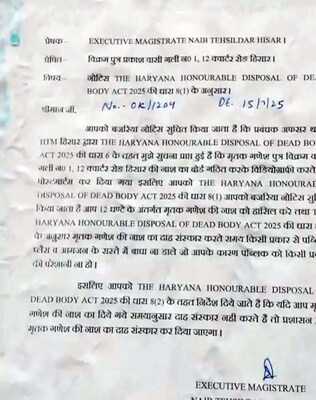 प्रेषक - EXECUTIVE MAGISTRATE NAIB TEHSILDAR HISAR I
प्रेषित - विक्रम पुत्र प्रकाश वासी गली नo 1, 12 क्वार्टर रोड हिसार।
विषय - नोटिस THE HARYANA HONOURABLE DISPOSAL OF DEAD
BODY ACT 2025 की धारा 8(1) के अनुसार।
श्रीमान जी, No.- OK/1204 DT. 15/7/25
आपको बजरिया नोटिस सुचित किया जाता है कि प्रबंधक अफसर था
HTM हिसार द्वारा THE HARYANA HONOURABLE DISPOSAL OF DEAD BO
ACT 2025 की धारा 6 के तहत मुझे सुचना प्राप्त हुई है कि मृतक गणेश पुत्र विक्रम व
गली नo1, 12 क्वार्टर रोड हिसार की नाश का बोर्ड गठित करके विडियोग्राफी करते
पोस्टमार्टम कर दिया गया इसलिए आपको THE HARYANA HONOURABL
DISPOSAL OF DEAD BODY ACT 2025 की धारा 8(1) आपको बजरिया नोटिस सु
किया जाता है आप 12 घण्टे के अंतर्गत मृतक गणेश की नाश को हासिल करे तथा T
HARYANA HONOURABLE DISPOSAL OF DEAD BODY ACT 2025 की धारा
के अनुसार मृतक गणेश की नाश का दाह संस्कार करते समय किसी प्रकार से पब्लि
प्लैस व आमजन के रास्ते में बाधा ना डाले जो आपके कारण पब्लिक को किसी प्र
की परेशानी ना हो।
इसलिए आपको THE HARYANA HONOURABLE DISPOSAL O
DEAD BODY ACT 2025 की धारा 8(2) के तहत निर्देश दिये जाते है कि यदि आप मृ
गणेश की नाश का दिये गये समयानुसार दाह संस्कार नही करते है तो प्रशासन
मृतक गणेश की नाश का दाह संस्कार कर दिया जाएगा।
EXECUTIVE MAGISTRATE